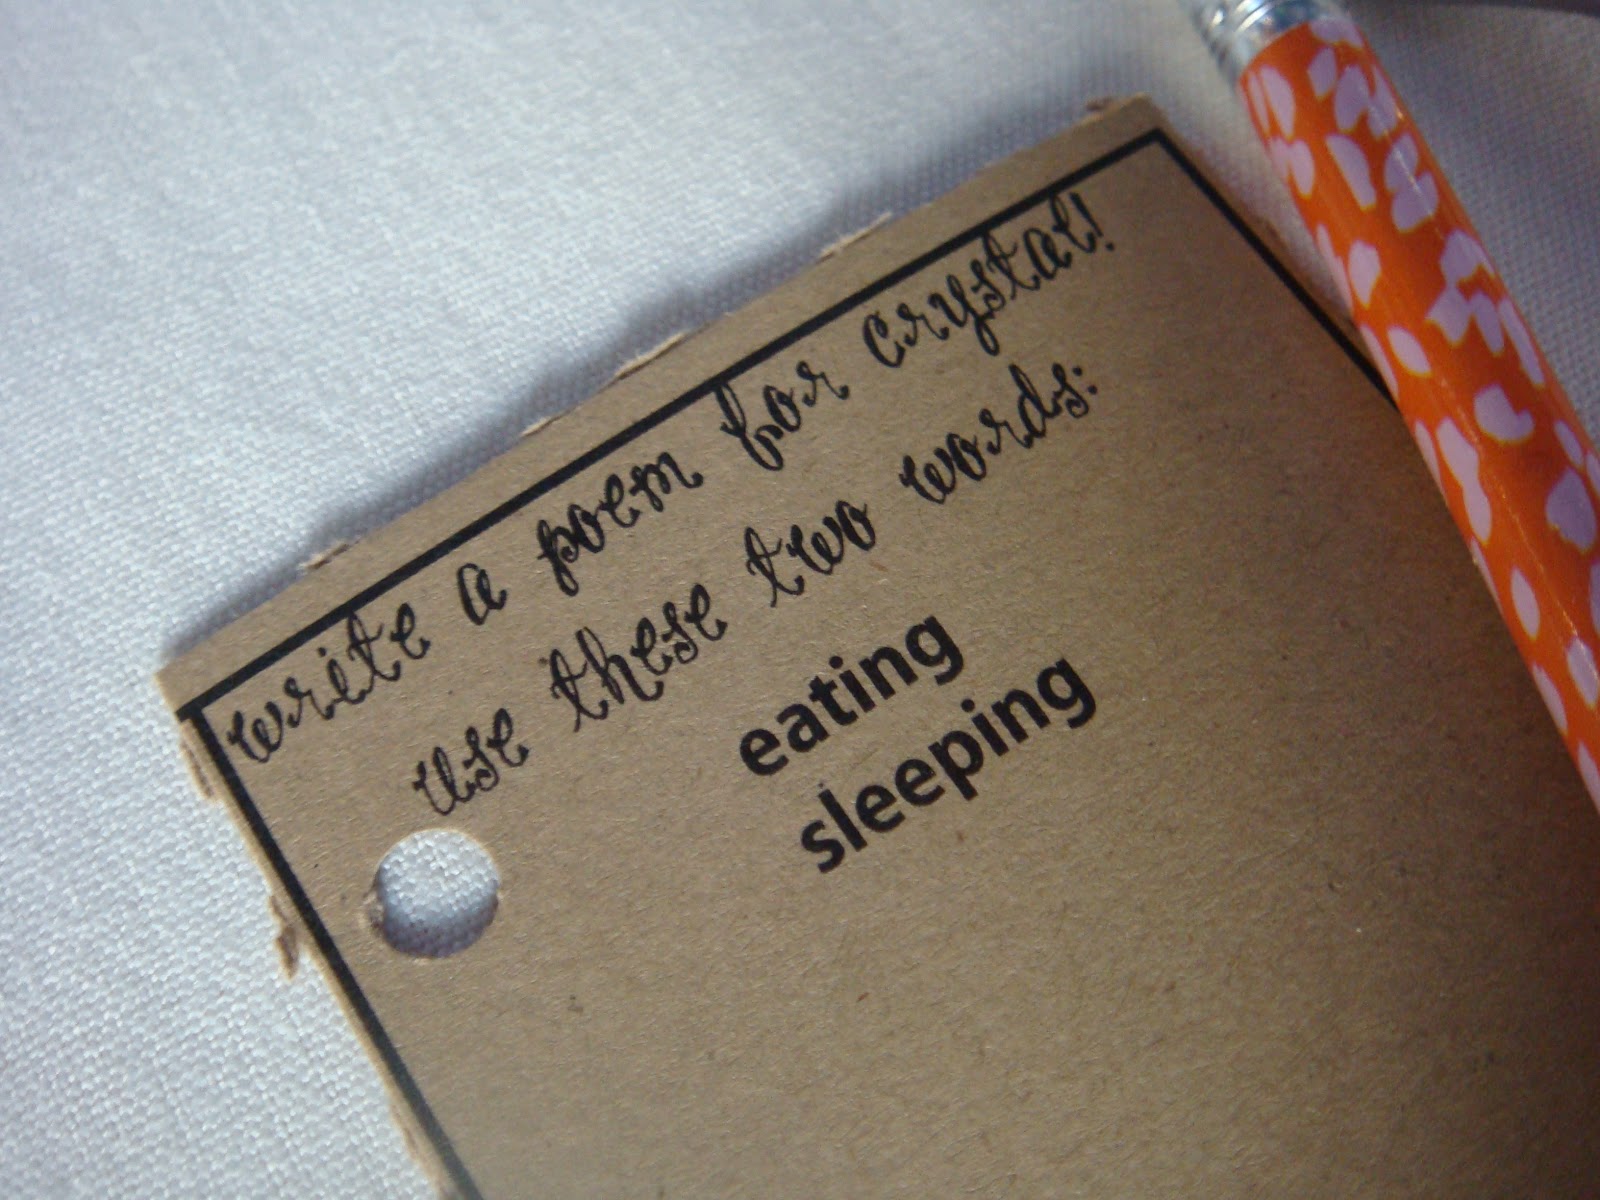 write a poem for crystal!
use these two words:
eating
sleeping